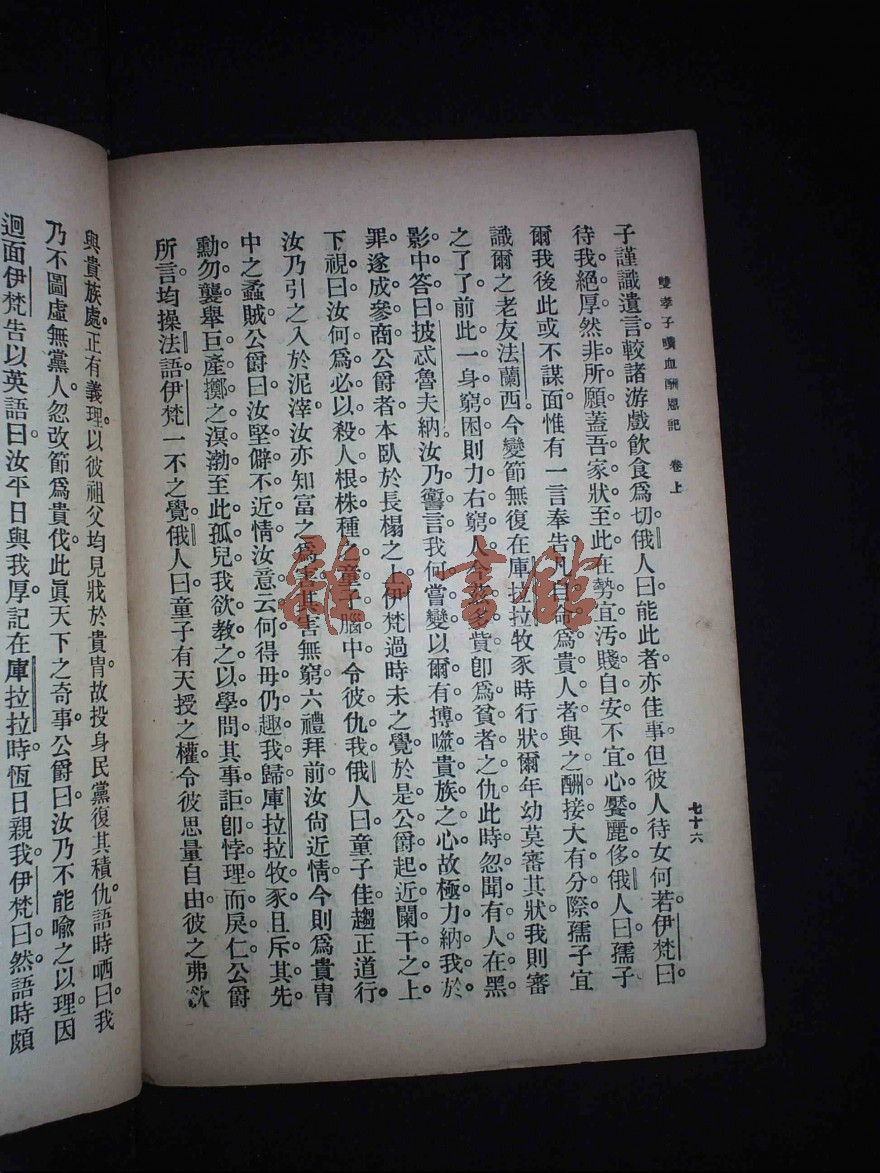 雙孝子噀血酬恩記　卷上
七十六
子謹識遺言較諸游戲飲食爲切俄人曰能此者亦佳事但彼人待女何若伊梵曰
待我絕厚然非所願蓋吾家狀至此在勢宜汚賤自安不宜心饜麗侈俄人曰孺子
爾我後此或不謀面惟有一言奉告凡自命爲貴人者與之酬接大有分際孺子宜
識爾之老友法蘭西今變節無復在庫拉拉牧豕時行狀爾年幼莫審其狀我則審
之了了前此一身窮困則力右窮人今茲多貲卽爲貧者之仇此時忽聞有人在黑
影中答曰披忒魯夫納汝乃讏言我何嘗變以爾有搏噬貴族之心故極力納我於
罪遂成參商公爵者本臥於長榻之上伊梵過時未之覺於是公爵起近闌干之上
下視曰汝何爲必以殺人根株種之童子腦中令彼仇我俄人曰童子佳趨正道行
汝乃引之入於泥滓汝亦知富之爲害其害無窮六禮拜前汝尙近情今則爲貴冑
中之蟊賊公爵曰汝堅僻不近情汝意云何得毋仍趣我歸庫拉拉牧豕且斥其先
勳勿襲舉巨產擲之溟渤至此孤兒我欲教之以學問其事詎卽悖理而戾仁公爵
所言均操法語伊梵一不之覺俄人曰童子有天授之權令彼思量自由彼之弗汝
與貴族處正有義理以彼祖父均見戕於貴冑故投身民黨復其積仇語時哂曰我
乃不圖虛無黨人忽改節爲貴伐此眞天下之奇事公爵曰汝乃不能喻之以理因
迴面伊梵告以英語曰汝平日與我厚記在庫拉拉時恆日親我伊梵曰然語時頗
雜·書館